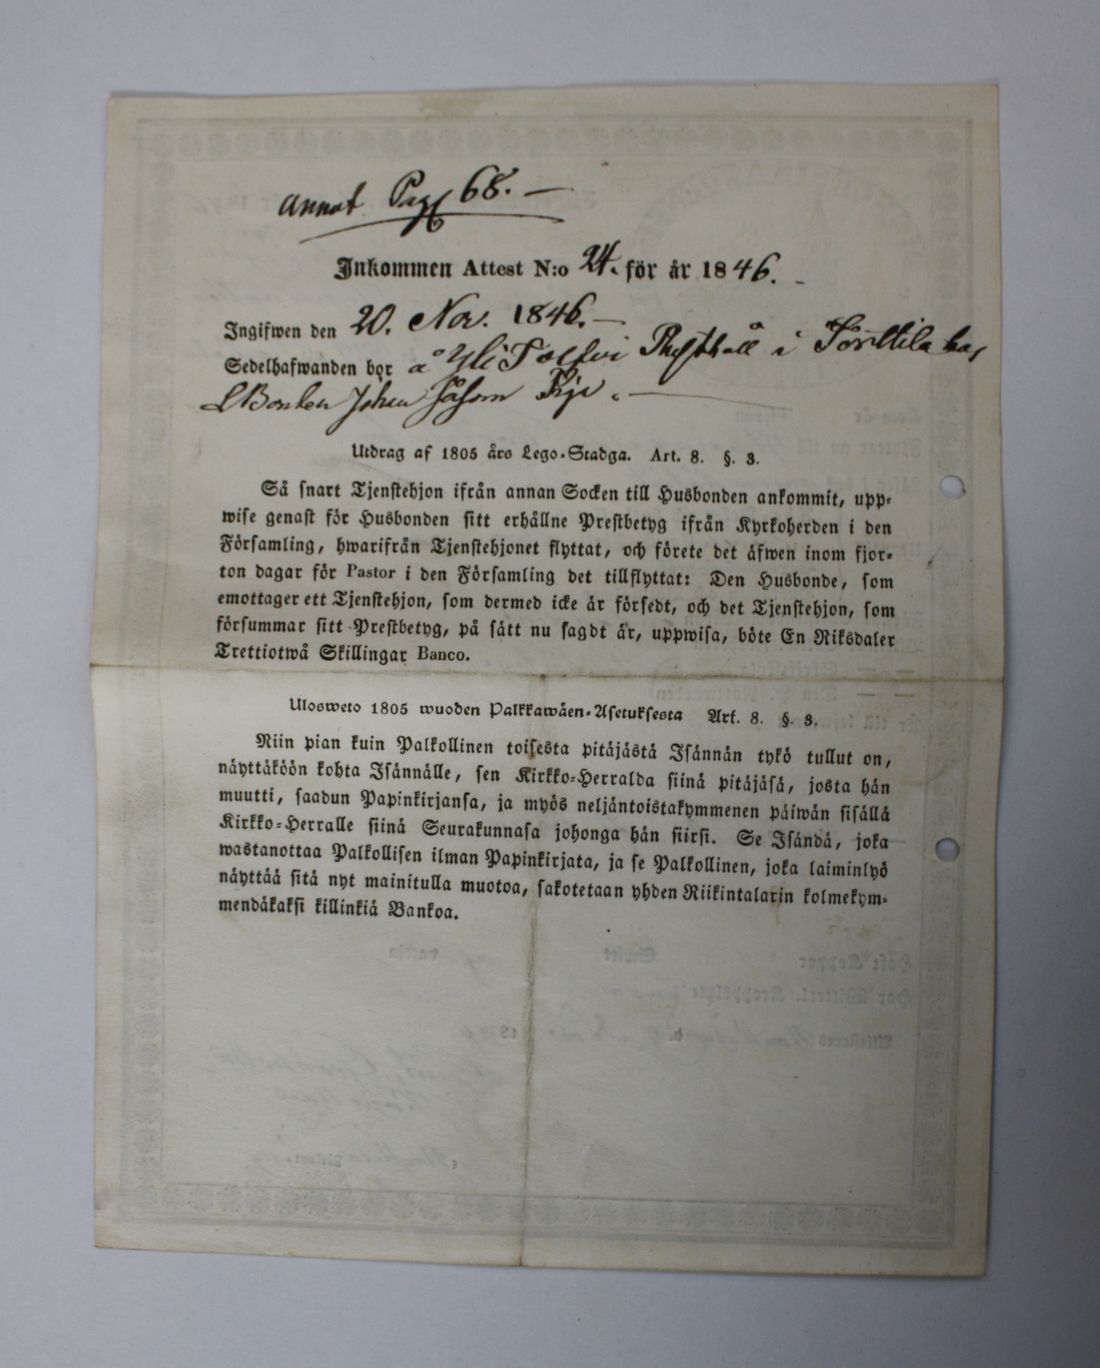 annot Pag 68. —
Inkommen Attest N:o 24. för år 1846. -
Ingifwen den 20. Nov. 1846. —
Sedelhafwanden bor å Yli Rusthåll i Sorttila hos
Bonden Johan såsom Pige. —
Utdrag af 1805 års Lego-Stadga. Art. 8. §. 3.
Så snart Tjenstehjon ifrån annan Socken till Husbonden ankommit, upp-
wise genast för Husbonden sitt erhållne Prestbetyg ifrån Kyrkoherden i den
Församling, hwarifrån Tjenstehjonet flyttat, och förete det äfwen inom fjor-
ton dagar för Pastor i den Församling det tillflyttat: Den Husbonde, som
emottager ett Tjenstehjon, som dermed icke är försedt, och det Tjenstehjon, som
försummar sitt Prestbetyg, på sätt nu sagdt är, uppwisa, böte En Riksdaler
Trettiotwå Skillingar Banco.
Ulosweto 1805 wuoden Palkkawäen-Asetuksesta Art. 8. §. 3.
Niin pian kuin Palkollinen toisesta pitäjästä Isännän tykö tullut on,
näyttäköön kohta Isännälle, sen Kirkko-Herralda siinä pitäjäsä, josta hän
muutti, saadun Papinkirjansa, ja myös neljäntoistakymmenen päiwän sisällä
Kirkko-Herralle siinä Seurakunnasa johonga hän siirsi. Se Isändä, joka
wastanottaa Palkollisen ilman Papinkirjata, ja se Palkollinen, joka laiminlyö
näyttää sitä nyt mainitulla muotoa, sakotetaan yhden Riikintalarin kolmekym-
mendäkaksi killinkiä Bankoa.